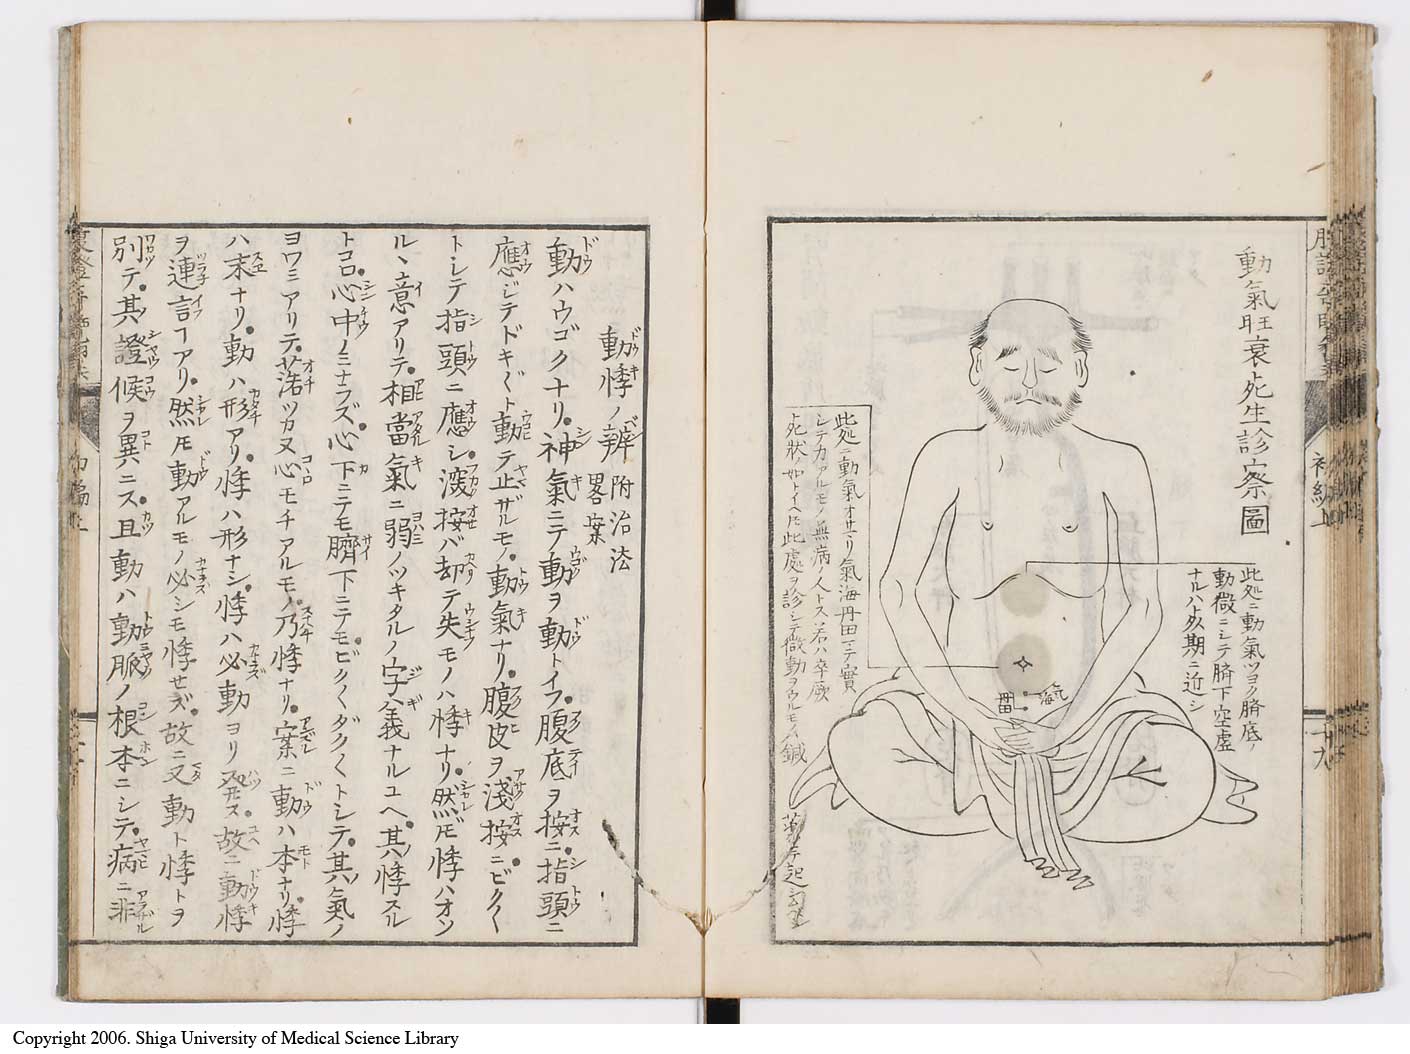 動氣旺衰死生診察圖
此処ニ動氣ツヨク臍底ノ
動微ニシテ臍下空虚
ナルハ必期ニ近シ
氣海
丹田
此処ニ動氣オサマリ氣海丹田ニテ實
シテ力アルモノ無病ノ人トス若ハ卒厥
死狀如トイヘ𪜈此處ヲ診シテ微動ヲウルモノハ鍼
藥ニテ起
動悸ノ辨 附治法畧案
動ハウゴクナリ神氣ニテ動ヲ動トイフ腹底ヲ按ニ指頭ニ
應ジテドキドキト動テ止ザルモノ動氣ナリ腹皮ヲ淺按ニビクビク
トシテ指頭ニ應シ深按バ却テ失モノハ悸ナリ然𪜈悸ハオソ
ルヽ意アリテ相當氣ニ弱ノツキタルノ字義ナルユヘ其悸スル
トコロ心中ノミナラズ心下ニテモ臍下ニテモビクビクダクダクトシテ其氣ノ
ヨワミアリテ落ツカヌ心モチアルモノ乃悸ナリ案ニ動ハ本ナリ悸
ハ末ナリ動ハ形アリ悸ハ形ナシ悸ハ必動ヨリ発ス故ニ動悸
ヲ連言ヿアリ然𪜈動アルモノ必シモ悸せズ故ニ又動ト悸トヲ
別テ其證候ヲ異ニス且動ハ動脈ノ根本ニシテ病ニ非
Copyright 2006. Shiga University of Medical Science Library